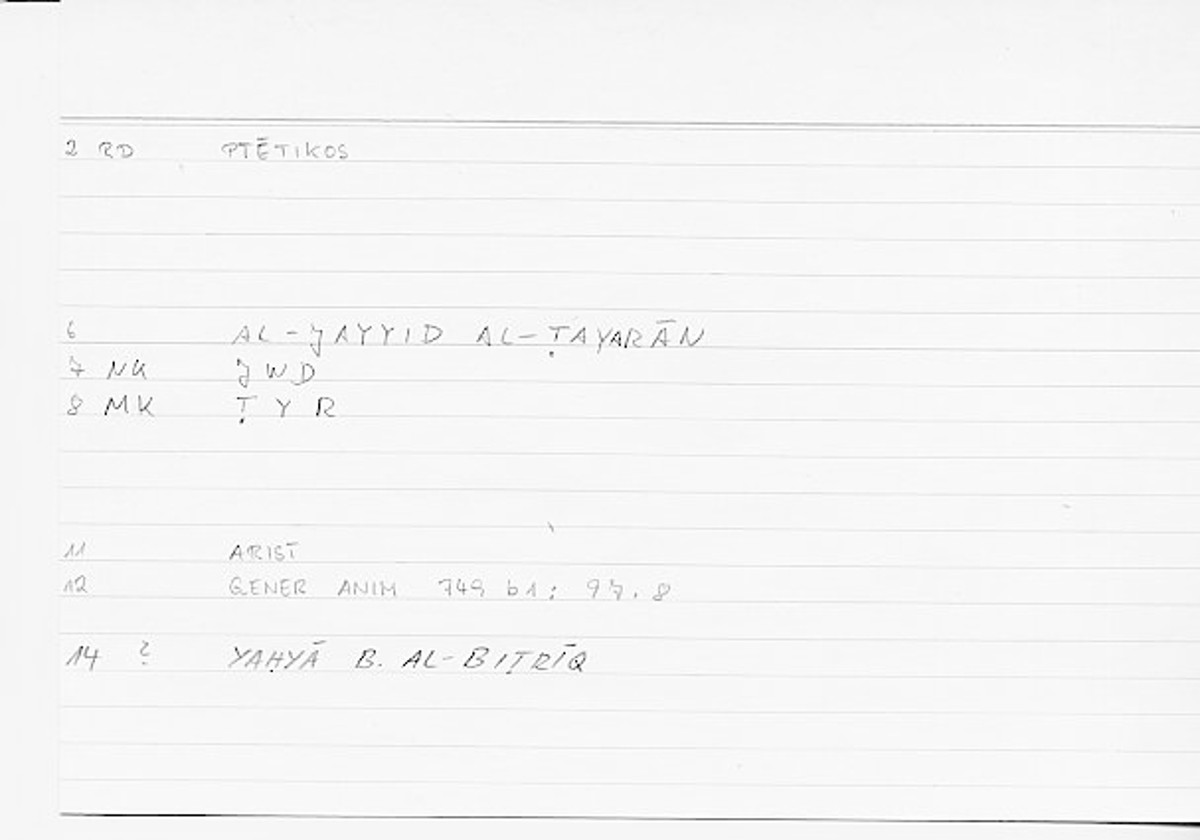 2 RD PTĒTIKOS
6 AL-JAYYID AL-ṬAYARĀN
7 NK JWD
8 MK ṬYR
11 ARIST
12 GENER ANIM 749 b1; 97.8
14 ? YAḤYĀ B. AL-BIṬRĪQ